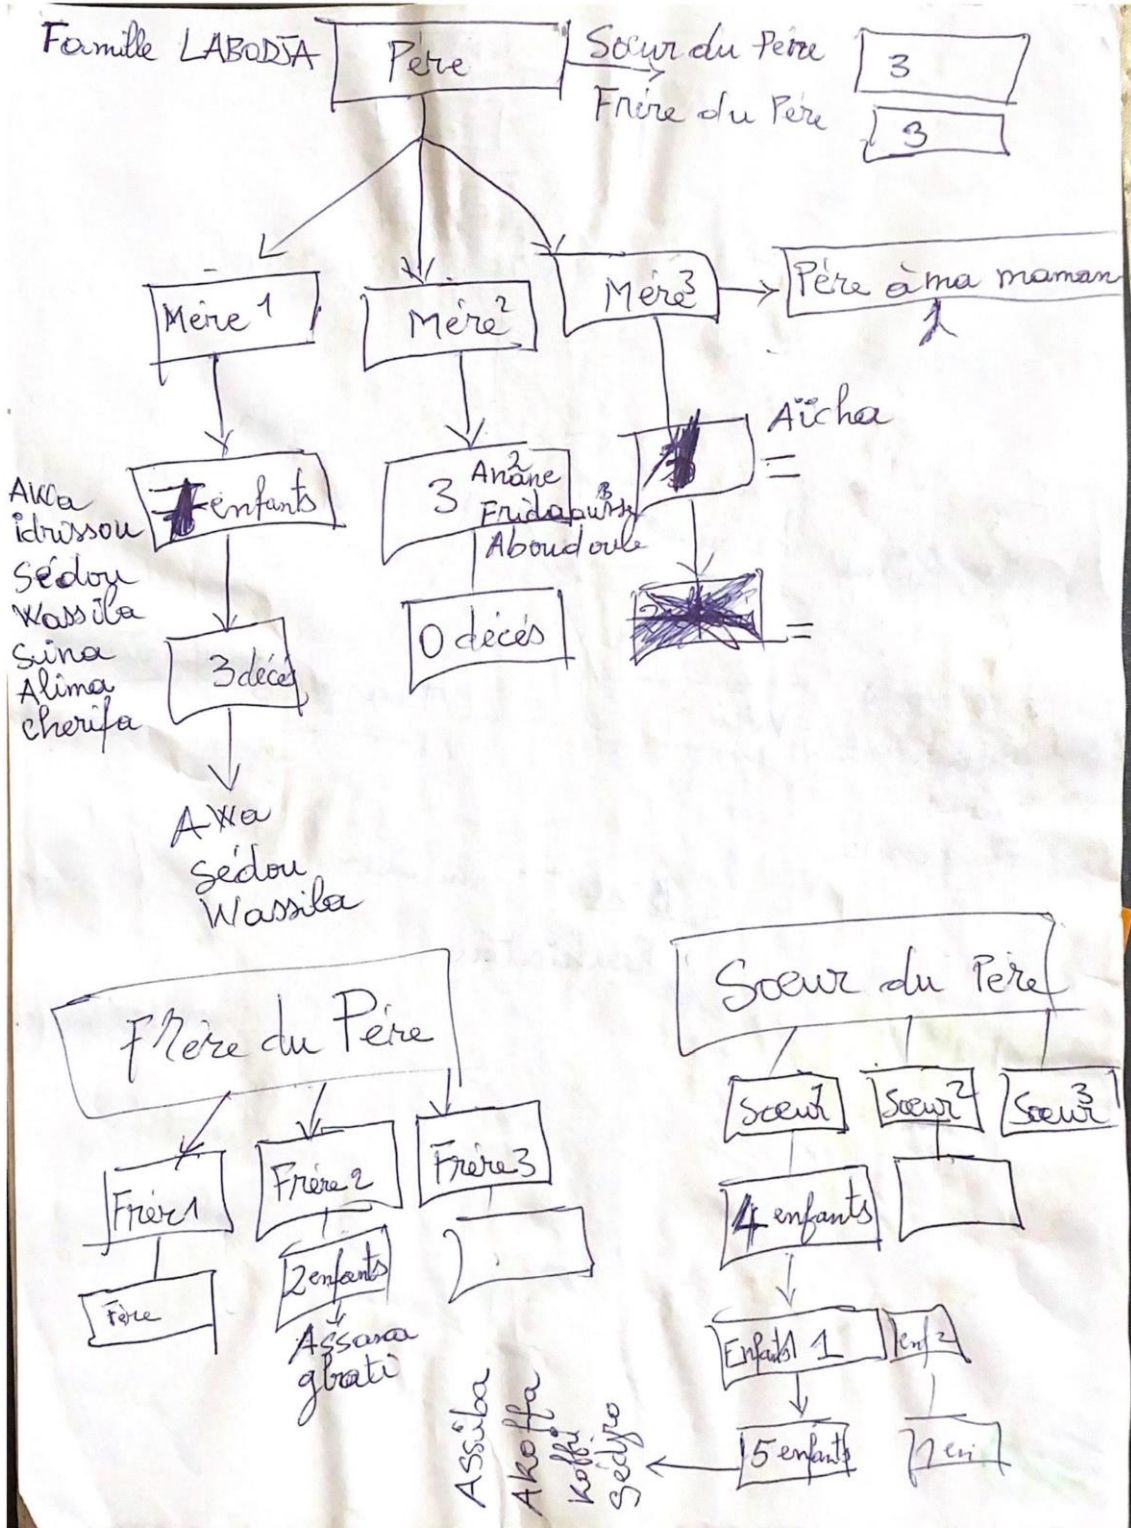 Famille LABODJA
Père
Sœur du Père
3
Frère du Père
3
Mère 1
Mère 2
Mère 3
Père à ma maman
1
enfants
Awa
idrissou
Sédou
Wassila
Suna
Alima
cherifa
3
2
Anane
Aboudoule
Aïcha
=
3 décés
0 décés
=
Awa
Sédou
Wassila
Frère du Père
Frèr 1
Frère 2
Frère 3
2 enfants
Assana
gbati
Sœur du Père
Sœur 1
Sœur 2
Sœur 3
4 enfants
Enfants 1
enf 2
5 enfants
1 en
Assiba
Akoffa
Koffi
Sédjro